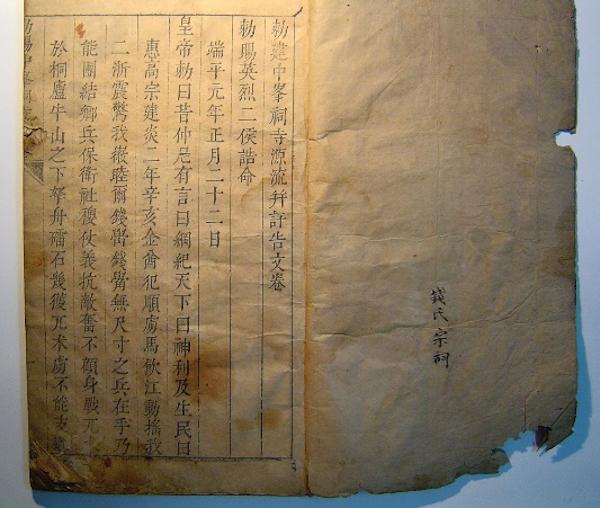 錢氏宗祠
勅建中峯祠寺源流幷訐告文卷
勅賜英烈二侯誥命
端平元年正月二十二日
皇帝勅曰昔仲尼有言曰綱紀天下曰神利及生民曰
惠高宗建炎二年辛亥金酋犯順虜馬飲江動搖我
二浙震驚我嚴睦爾錢觷錢觷無尺寸之兵在手乃
能團結鄉兵保衛社稷仗義抗敵奮不顧身戰兀
於桐廬牛山之下拏舟礌石幾獲兀术虜不能支
勅賜中峯祠